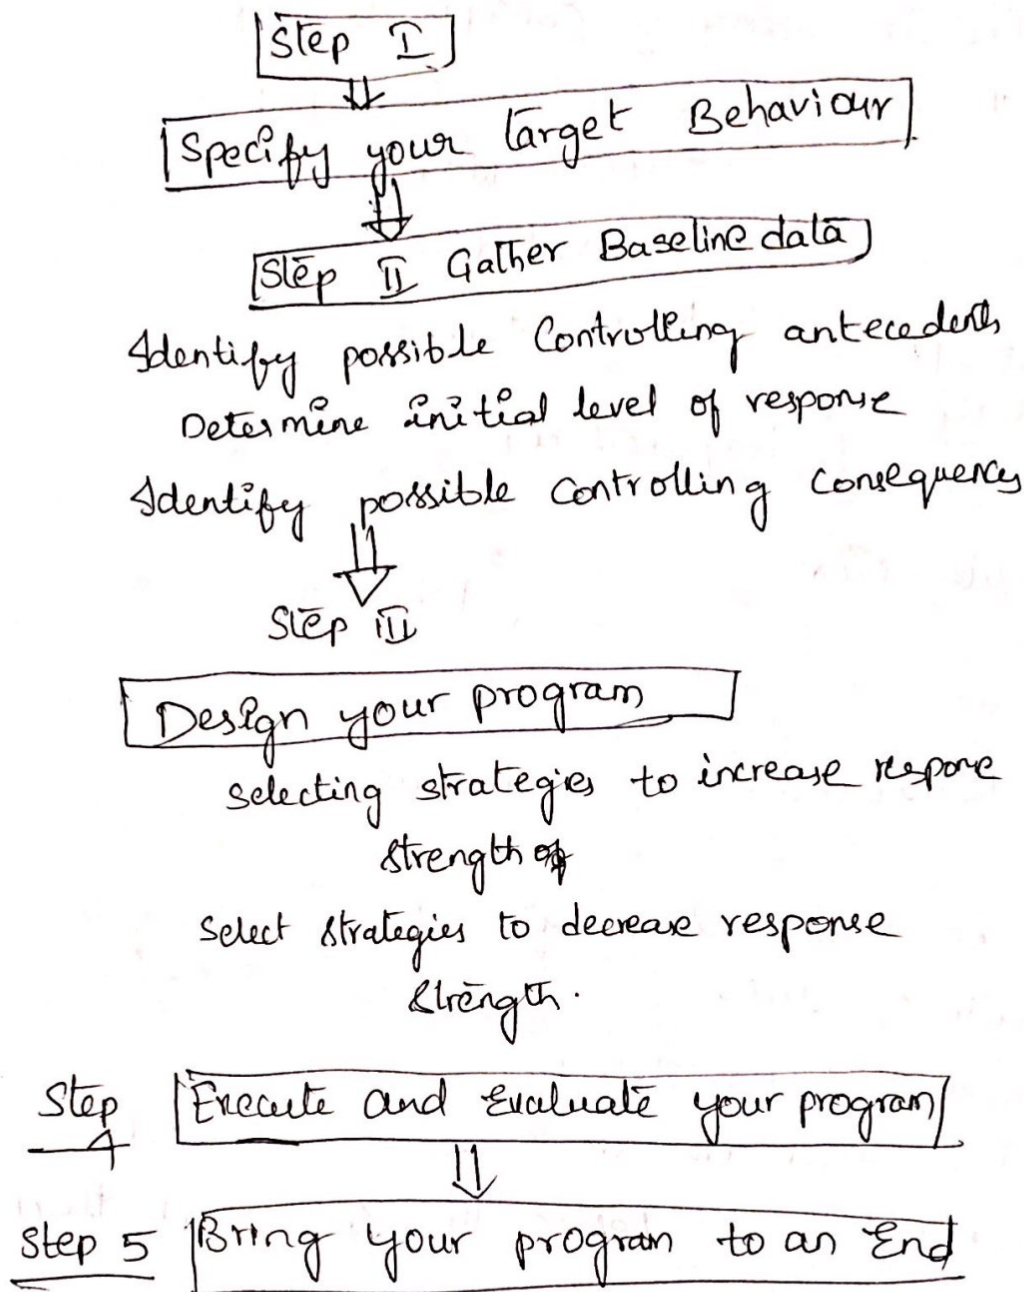 Step I
Specify your target Behaviour
Step II Gather Baseline data
Identify possible Controlling antecedents
Determine initial level of response
Identify possible controlling consequences
Step III
Design your program
selecting strategies to increase respone
strength of
Select strategies to decrease response
strength.
Step 4 Execute and Evaluate your program
Step 5 Bring your program to an End